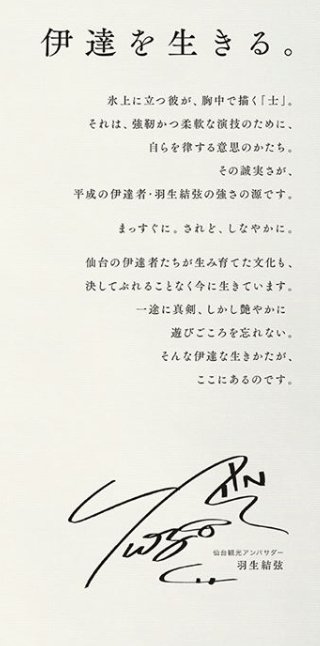 伊達を生きる。
氷上に立つ彼が、胸中で描く「士」。
それは、強靭かつ柔軟な演技のために、
自らを律する意思のかたち。
その誠実さが、
平成の伊達者・羽生結弦の強さの源です。
まっすぐに。されど、しなやかに。
仙台の伊達者たちが生み育てた文化も、
決してぶれることなく今に生きています。
一途に真剣、しかし艶やかに
遊びごころを忘れない。
そんな伊達な生きかたが、
ここにあるのです。
仙台観光アンバサダー
羽生結弦